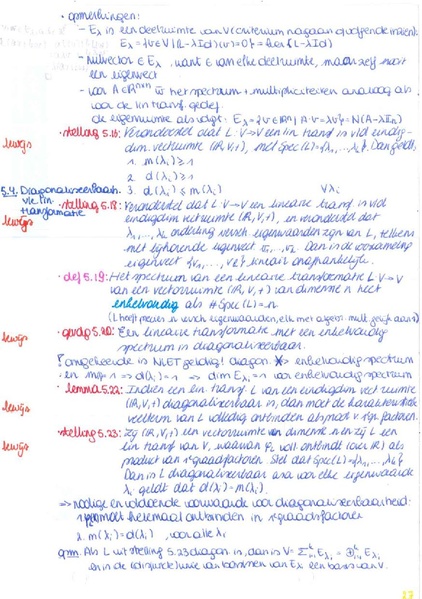 • opmerkingen:
- Eλ is een deelruimte van V (criterium nagaan op volgende manier):
Eλ = {v ∈ V | (L-λId)(v) = 0} = ker(L-λId)
- nulvector ∈ Eλ, want ∈ van elke deelruimte, maar zelf nooit
een eigenvect
- voor A ∈ ℝⁿˣⁿ w het spectrum + multipliciteiten analoog als
voor de lin transf. gedef.
de eigenruimte als volgt: Eλ = {v ∈ ℝⁿ | A·v = λv} = N(A-λIn)
bewijs
• stelling 5.16: Veronderstel dat L: V→V een lin transf is v/d eindig-
dim. vectruimte (ℝ, V, +), met Spec(L) = {λ1, ..., λk}. Dan geldt:
1. m(λi) ≥ 1
2. d(λi) ≥ 1
3. d(λi) ≤ m(λi) ∀λi
5.4. Diagonaliseerbaarh.
v/e lin.
transformatie
bewijs
• stelling 5.18: Veronderstel dat L: V→V een lineaire transf is v/d
eindigdim vectruimte (ℝ, V, +), en veronderstel dat
λ1, ..., λk onderling versch. eigenwaarden zijn van L, telkens
met bijhorende eigenvect v1, ..., vk. Dan is de verzameling
eigenvect {v1, ..., vk} lineair onafhankelijk.
• def 5.19: Het spectrum van een lineaire transformatie L: V→V
van een vectorruimte (ℝ, V, +) van dimensie n heet
enkelvoudig als # Spec(L) = n.
(L heeft precies n versch eigenwaarden, elk met algebr. mult. gelijk aan 1)
bewijs
• gevolg 5.20: Een lineaire transformatie met een enkelvoudig
spectrum is diagonaliseerbaar.
! omgekeerde is NIET geldig! diagon ⇏ enkelvoudig spectrum
en m(λi) = 1 → d(λi) = 1 → dim Eλi = 1 voor enkelvoudig spectrum
bewijs
• lemma 5.22: Indien een lin transf. L van een eindigdim vect ruimte
(ℝ, V, +) diagonaliseerbaar is, dan moet de karakteristieke
veelterm van L volledig ontbinden als prod v 1e gr. factoren.
bewijs
• stelling 5.23: Zij (ℝ, V, +) een vectorruimte van dimensie n en zij L een
lin transf van V, waarvan φL voll ontbindt (over ℝ) als
product van 1e graadsfactoren. Stel dat Spec(L) = {λ1, ..., λk}
Dan is L diagonaliseerbaar asa voor elke eigenwaarde
λi geldt dat d(λi) = m(λi).
⇒ nodige en voldoende voorwaarde voor diagonaliseerbaarheid:
1. φL moet helemaal ontbinden in 1e graadsfactoren
2. m(λi) = d(λi), voor alle λi
opm. Als L uit stelling 5.23 diagon is, dan is V = Σ Eλi = ⊕ Eλi
en is de (disjuncte) unie van basissen van Eλi een basis van V.
23